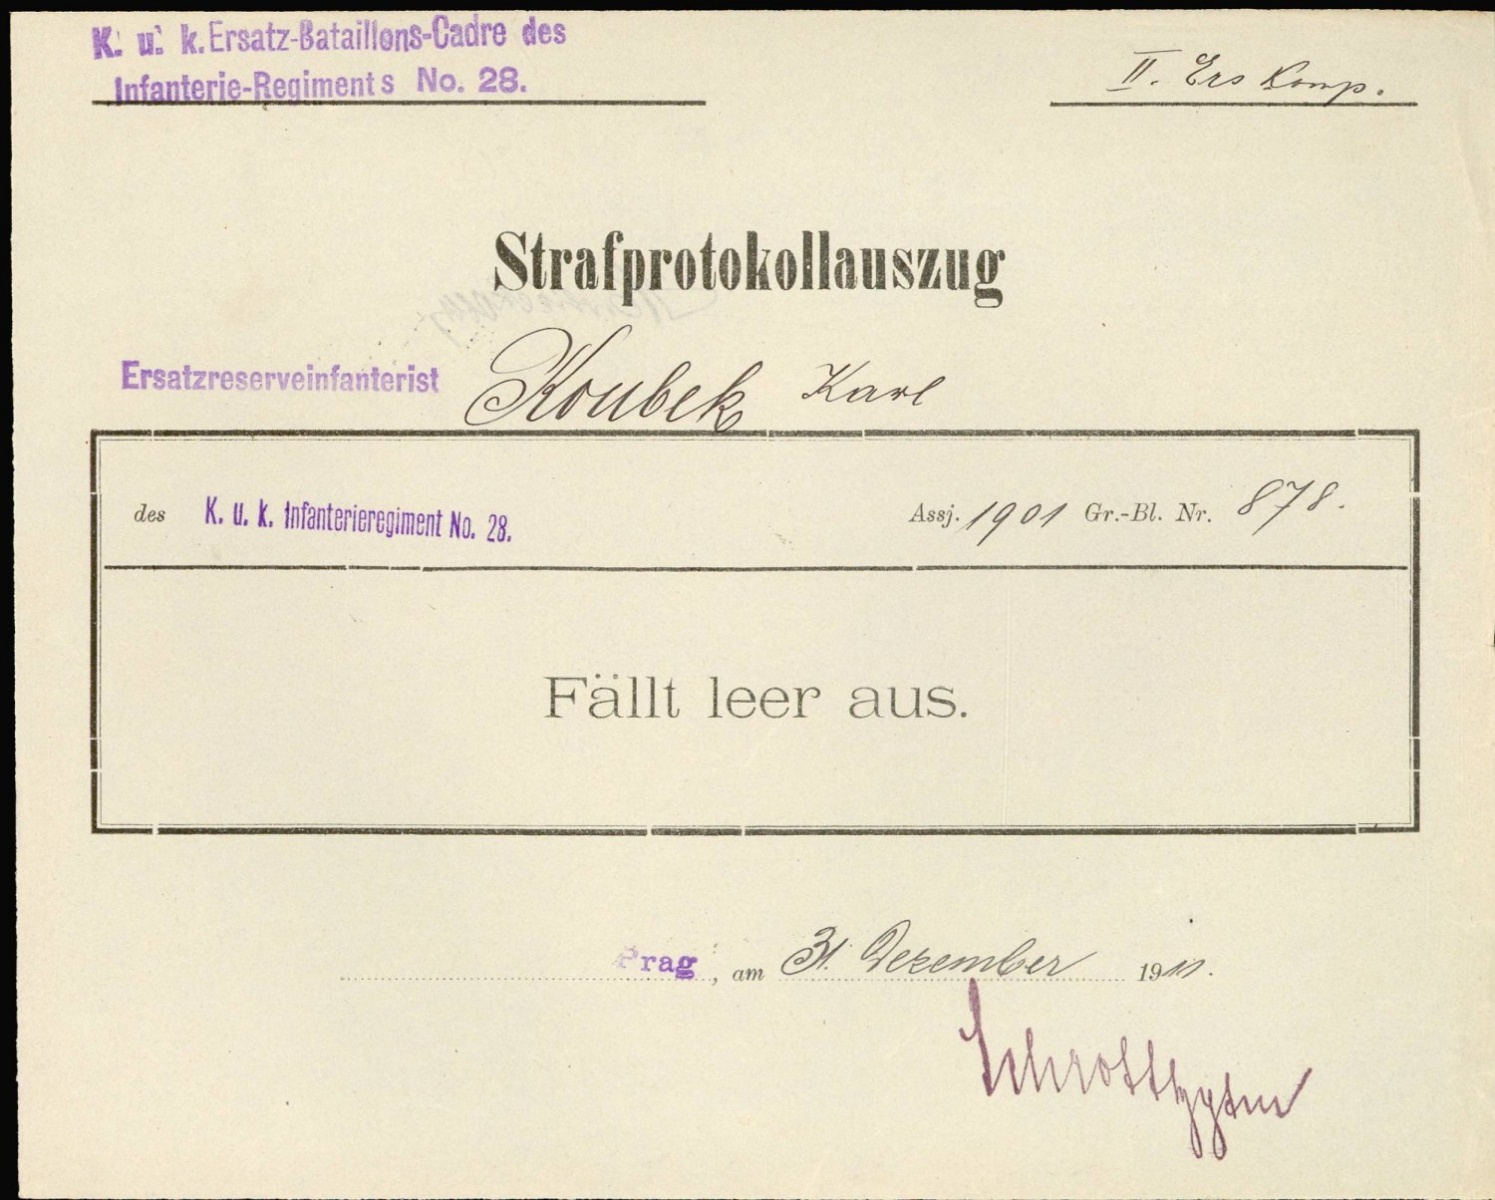 K. u. k. Ersatz-Bataillons-Cadre des
Infanterie-Regiments No. 28.
II. Ers Komp.
Strafprotokollauszug
Ersatzreserveinfanterist Koubek Karl
des K. u. k. Infanterieregiment No. 28. Assj. 1901 Gr.-Bl. Nr. 878.
Fällt leer aus.
Prag, am 31. Dezember 1911.